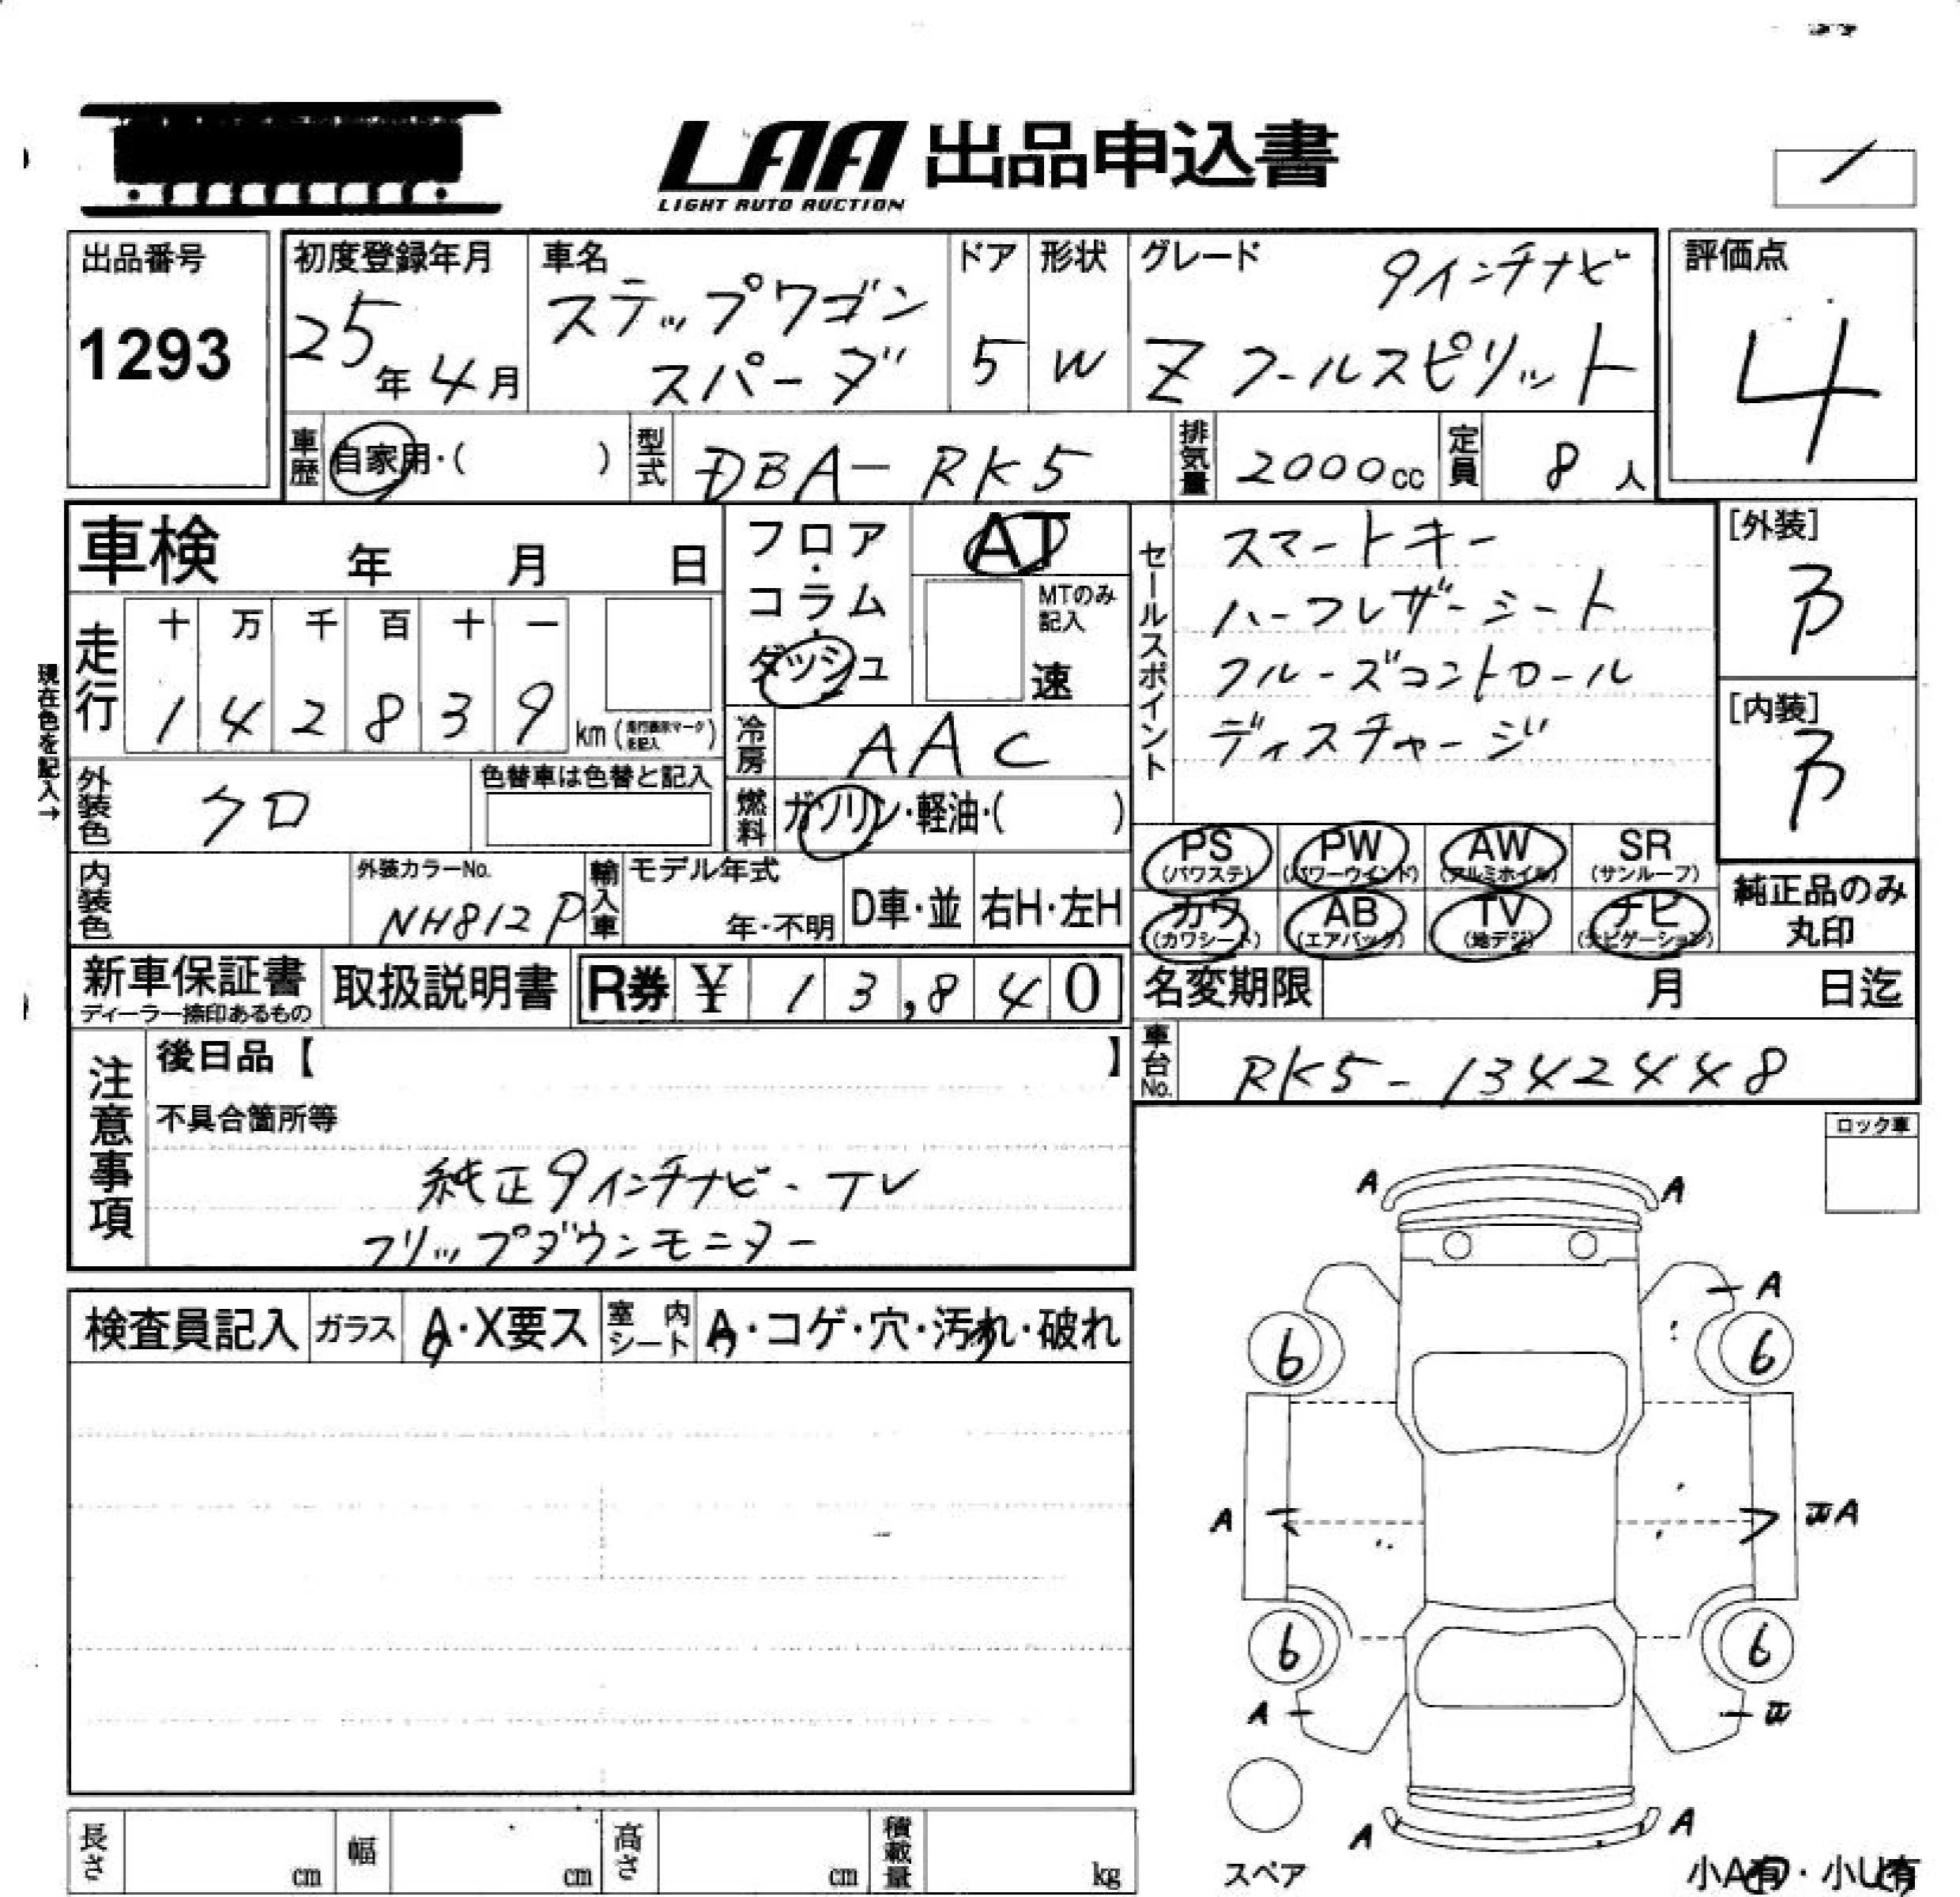 LAA 出品申込書
LIGHT AUTO AUCTION
出品番号
1293
初度登録年月
25年4月
車名
ステップワゴン
スパーダ
ドア
5
形状
W
グレード
9インチナビ
Z クールスピリット
評価点
4
車歴
自家用・( )
型式
DBA-RK5
排気量
2000cc
定員
8人
車検 年 月 日
フロア・コラム・ダッシュ
AT
MTのみ記入
速
セールスポイント
スマートキー
ハーフレザーシート
クルーズコントロール
ディスチャージ
[外装]
B
[内装]
B
現在色を記入→
走行
十 万 千 百 十 一
1 4 2 8 3 9 km
冷房
AAC
外装色
クロ
色替車は色替と記入
燃料
ガソリン・軽油・( )
PS
(パワステ)
PW
(パワーウインド)
AW
(アルミホイル)
SR
(サンルーフ)
カワ
(カワシート)
AB
(エアバック)
TV
(地デジ)
ナビ
(ナビゲーション)
純正品のみ
丸印
内装色
外装カラーNo.
NH812P
輸入車
モデル年式
年・不明
D車・並
右H・左H
新車保証書
ディーラー捺印あるもの
取扱説明書
R券 ¥ 13,840
名変期限 月 日迄
車台No.
RK5-1342448
注意事項
後日品【 】
不具合箇所等
純正9インチナビ・TV
フリップダウンモニター
ロック車
検査員記入
ガラス
A・X要ス
室内シート
A・コゲ・穴・汚れ・破れ
A A
A
6 6
A A
6 6
A
A A
スペア
小A有・小U有
長さ cm
幅 cm
高さ cm
積載量 kg